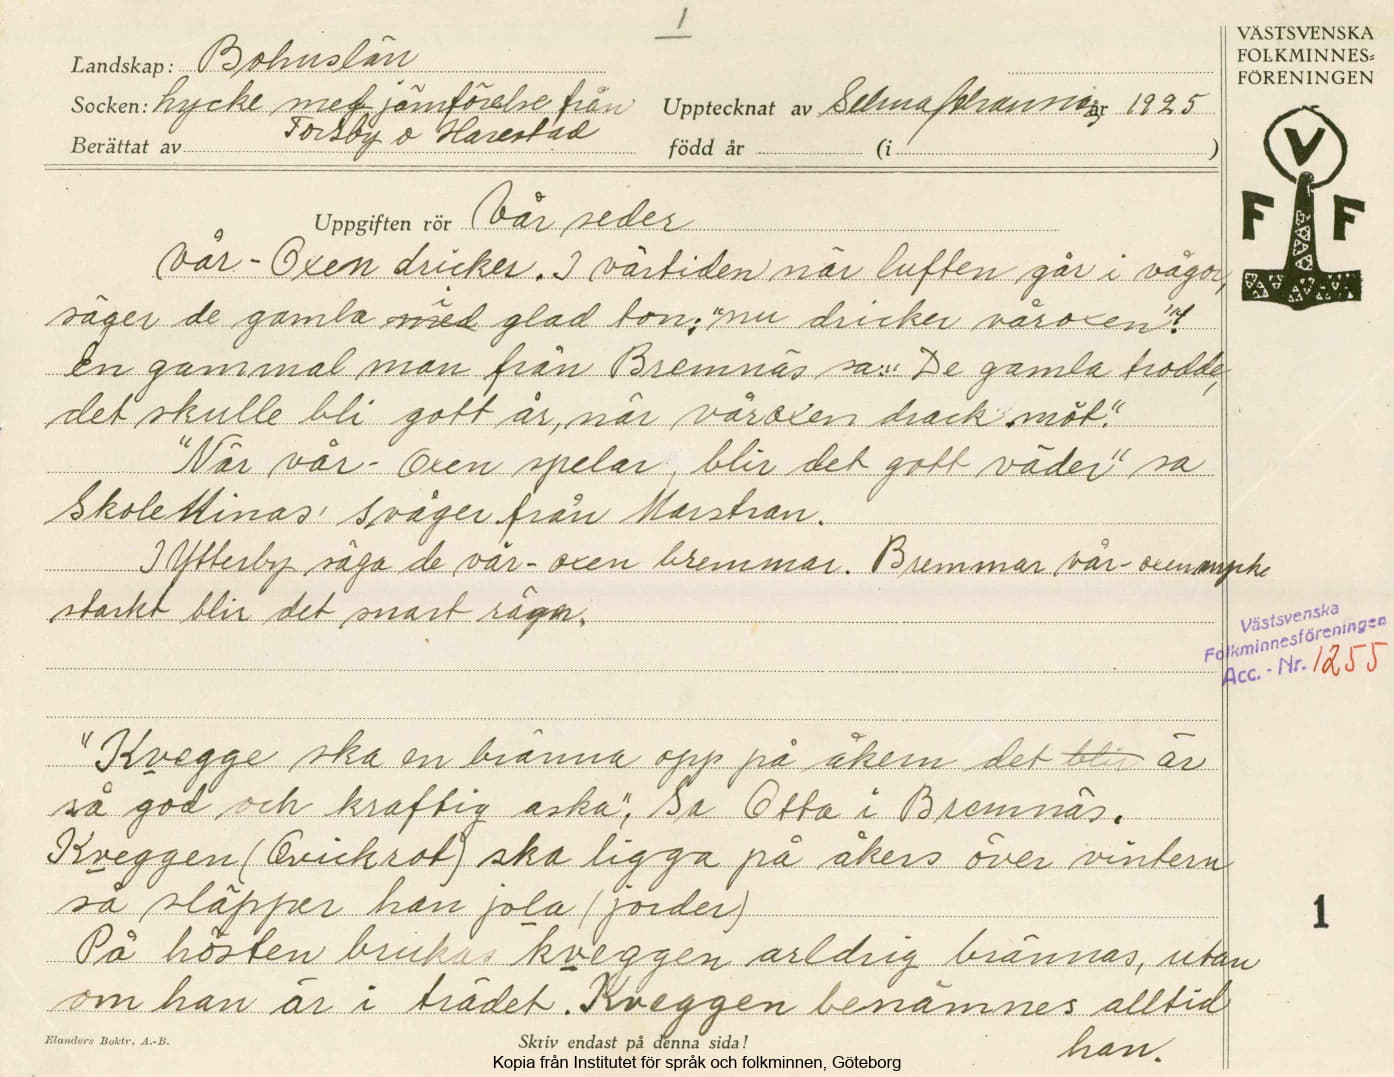 1
VÄSTSVENSKA
FOLKMINNES=
FÖRENINGEN
Landskap: Bohuslän
Socken: Lycke med jämförelse från
Torsby o Harestad
Upptecknat av Selma Johansson år 1925
Berättat av
född år (i )
V
F F
Uppgiften rör Vår seder
Vår-Oxen dricker. I vårtiden när luften går i vågor,
säger de gamla med glad ton: "nu dricker våroxen"!
En gammal man från Bremnäs sa: "De gamla trodde,
det skulle bli gott år, när våroxen drack möt."
"När vår-Oxen spelar, blir det gott väder" sa
Skole Minas' svåger från Marstran.
I Ytterby säga de vår-oxen bremmar. Bremmar vår-oxen mycke
starkt blir det snart rägn.
Västsvenska
Folkminnesföreningen
Acc. - Nr. 1255
"Kvegge ska en bränna opp på åkern det blir är
så god och kraftig aska", sa Otta i Bremnäs.
Kveggen (Qvickrot) ska ligga på åkern över vintern
så släpper han jola (jorden)
1
På hösten brukas kveggen arldrig brännas, utan
om han är i trädet. Kveggen benämnes alltid
han.
Elanders Boktr. A.-B.
Skriv endast på denna sida!
Kopia från Institutet för språk och folkminnen, Göteborg